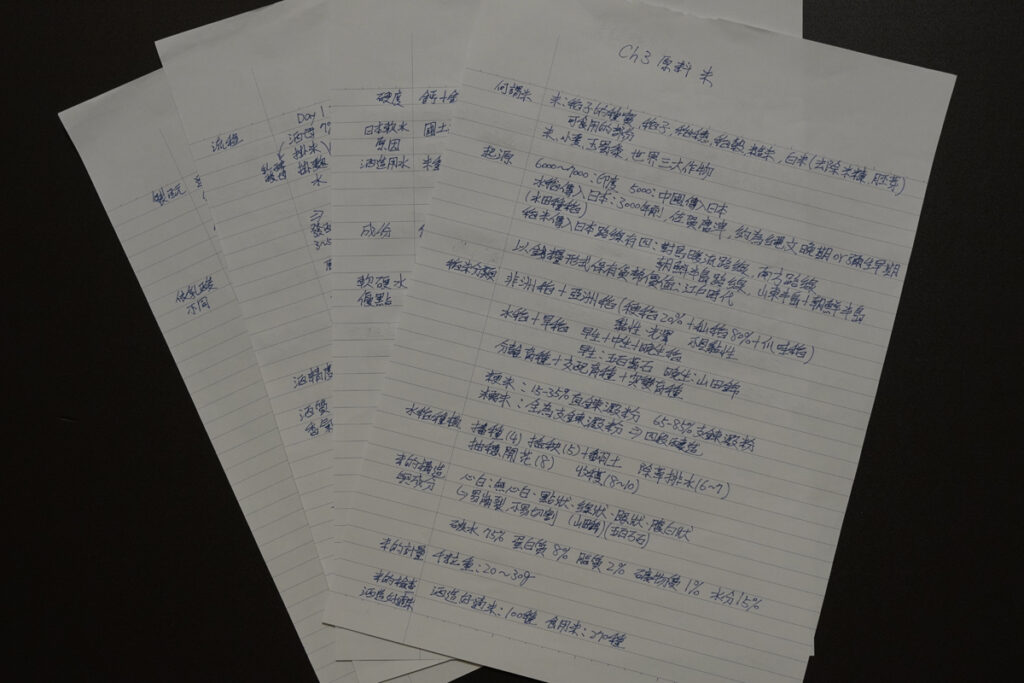 Ch3 原料 米
何謂米 米:稻子的種實, 稻子, 稻穗, 稻穀, 糙米, 白米(去除米糠 胚芽)
可食用的部分
米、小麥、玉蜀黍, 世界三大作物
起源 6000~7000:印度 5000:中國傳入日本
水稻傳入日本:3000年前, 佐賀唐津, 約為繩文晚期 or 彌生早期
(水田種稻)
稻米傳入日本路線有四:對馬暖流路線, 南方路線
朝朝半島路線, 山東半島+朝鮮半島
以錢糧形式保有貨幣價值:江戶時代
稻米分類 非洲稻+亞洲稻(粳稻20%+秈稻80%+爪哇稻)
黏性 光澤 不具黏性
水稻+旱稻 早生+中生+晚生稻
早生:五百萬石 晚生:山田錦
分離育種+交配育種+突變育種
粳米:15-35%直鍊澱粉 65-85%支鍊澱粉
糯米:全為支鍊澱粉
水稻種植 播種(4) 插秧(5)+翻土 除草排水(6~7)
抽穗開花(8) 收穫(8~10)
米的構造與成分 心白:無心白.點狀.線狀.眼狀.腹白狀
↳易崩裂, 不易切割 (山田錦)(五百万石)
碳水75% 蛋白質8% 脂質2% 礦物質1% 水分15%
米的計量 千粒重:20~30g
米的檢查
酒造好適米 酒造好適米:100種 食用米:270種
硬度 鈣+
日本軟水 國土
原因
酒造用水
成份
軟硬水
優點
Day 1
流程
排水
水
酒精度
酒質
香氣
製麴
不同